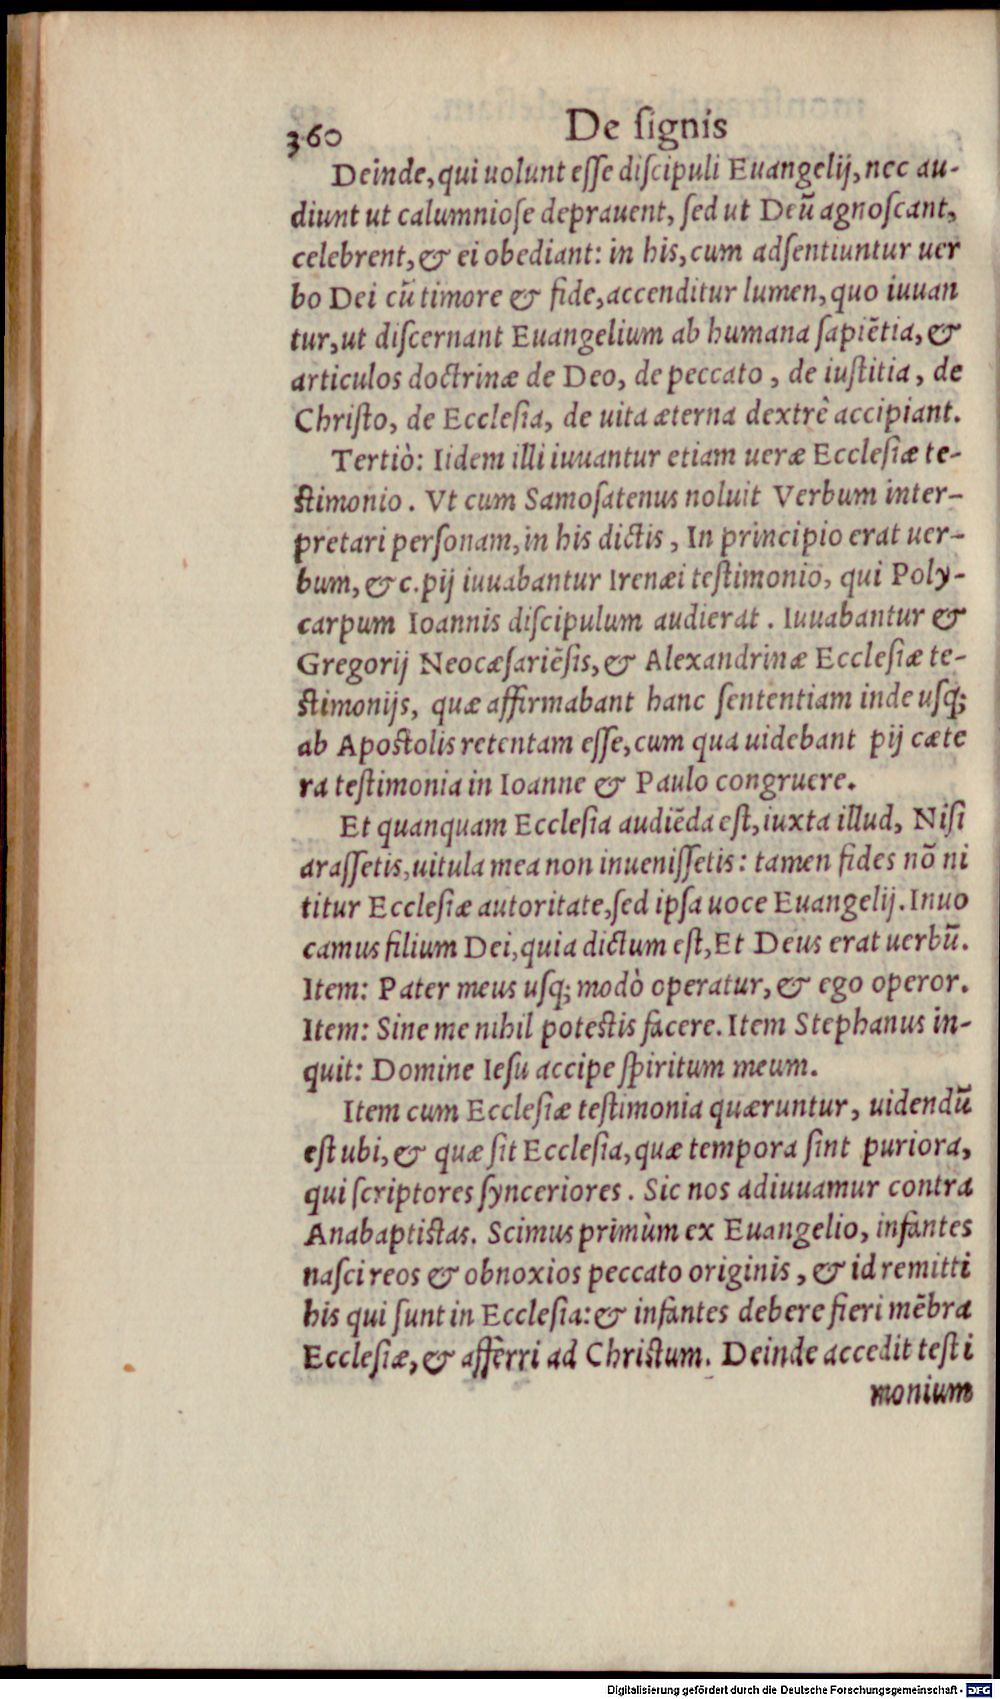 360 De ſignis
Deinde, qui uolunt eſſe diſcipuli Euangelij, nec au-
diunt ut calumnioſe deprauent, ſed ut Deũ agnoſcant,
celebrent, & ei obediant: in his, cum adſentiuntur uer
bo Dei cũ timore & fide, accenditur lumen, quo iuuan
tur, ut diſcernant Euangelium ab humana ſapiẽtia, &
articulos doctrinæ de Deo, de peccato, de iuſtitia, de
Chriſto, de Eccleſia, de uita æterna dextrè accipiant.
Tertiò: Iidem illi iuuantur etiam ueræ Eccleſiæ te-
ſtimonio. Vt cum Samoſatenus noluit Verbum inter-
pretari perſonam, in his dictis, In principio erat uer-
bum, &c. pij iuuabantur Irenæi teſtimonio, qui Poly-
carpum Ioannis diſcipulum audierat. Iuuabantur &
Gregorij Neocæſariẽſis, & Alexandrinæ Eccleſiæ te-
ſtimonijs, quæ affirmabant hanc ſententiam inde uſq;
ab Apoſtolis retentam eſſe, cum qua uidebant pij cæte
ra teſtimonia in Ioanne & Paulo congruere.
Et quanquam Eccleſia audiẽda eſt, iuxta illud, Niſi
araſſetis, uitula mea non inueniſſetis: tamen fides nõ ni
titur Eccleſiæ autoritate, ſed ipſa uoce Euangelij. Inuo
camus filium Dei, quia dictum eſt, Et Deus erat uerbũ.
Item: Pater meus uſq; modò operatur, & ego operor.
Item: Sine me nihil poteſtis facere. Item Stephanus in-
quit: Domine Ieſu accipe ſpiritum meum.
Item cum Eccleſiæ teſtimonia quæruntur, uidendũ
eſt ubi, & quæ ſit Eccleſia, quæ tempora ſint puriora,
qui ſcriptores ſynceriores. Sic nos adiuuamur contra
Anabaptiſtas. Scimus primùm ex Euangelio, infantes
naſci reos & obnoxios peccato originis, & id remitti
his qui ſunt in Eccleſia: & infantes debere fieri mẽbra
Eccleſiæ, & afferri ad Chriſtum. Deinde accedit teſti
monium
Digitalisierung gefördert durch die Deutsche Forschungsgemeinschaft - DFG